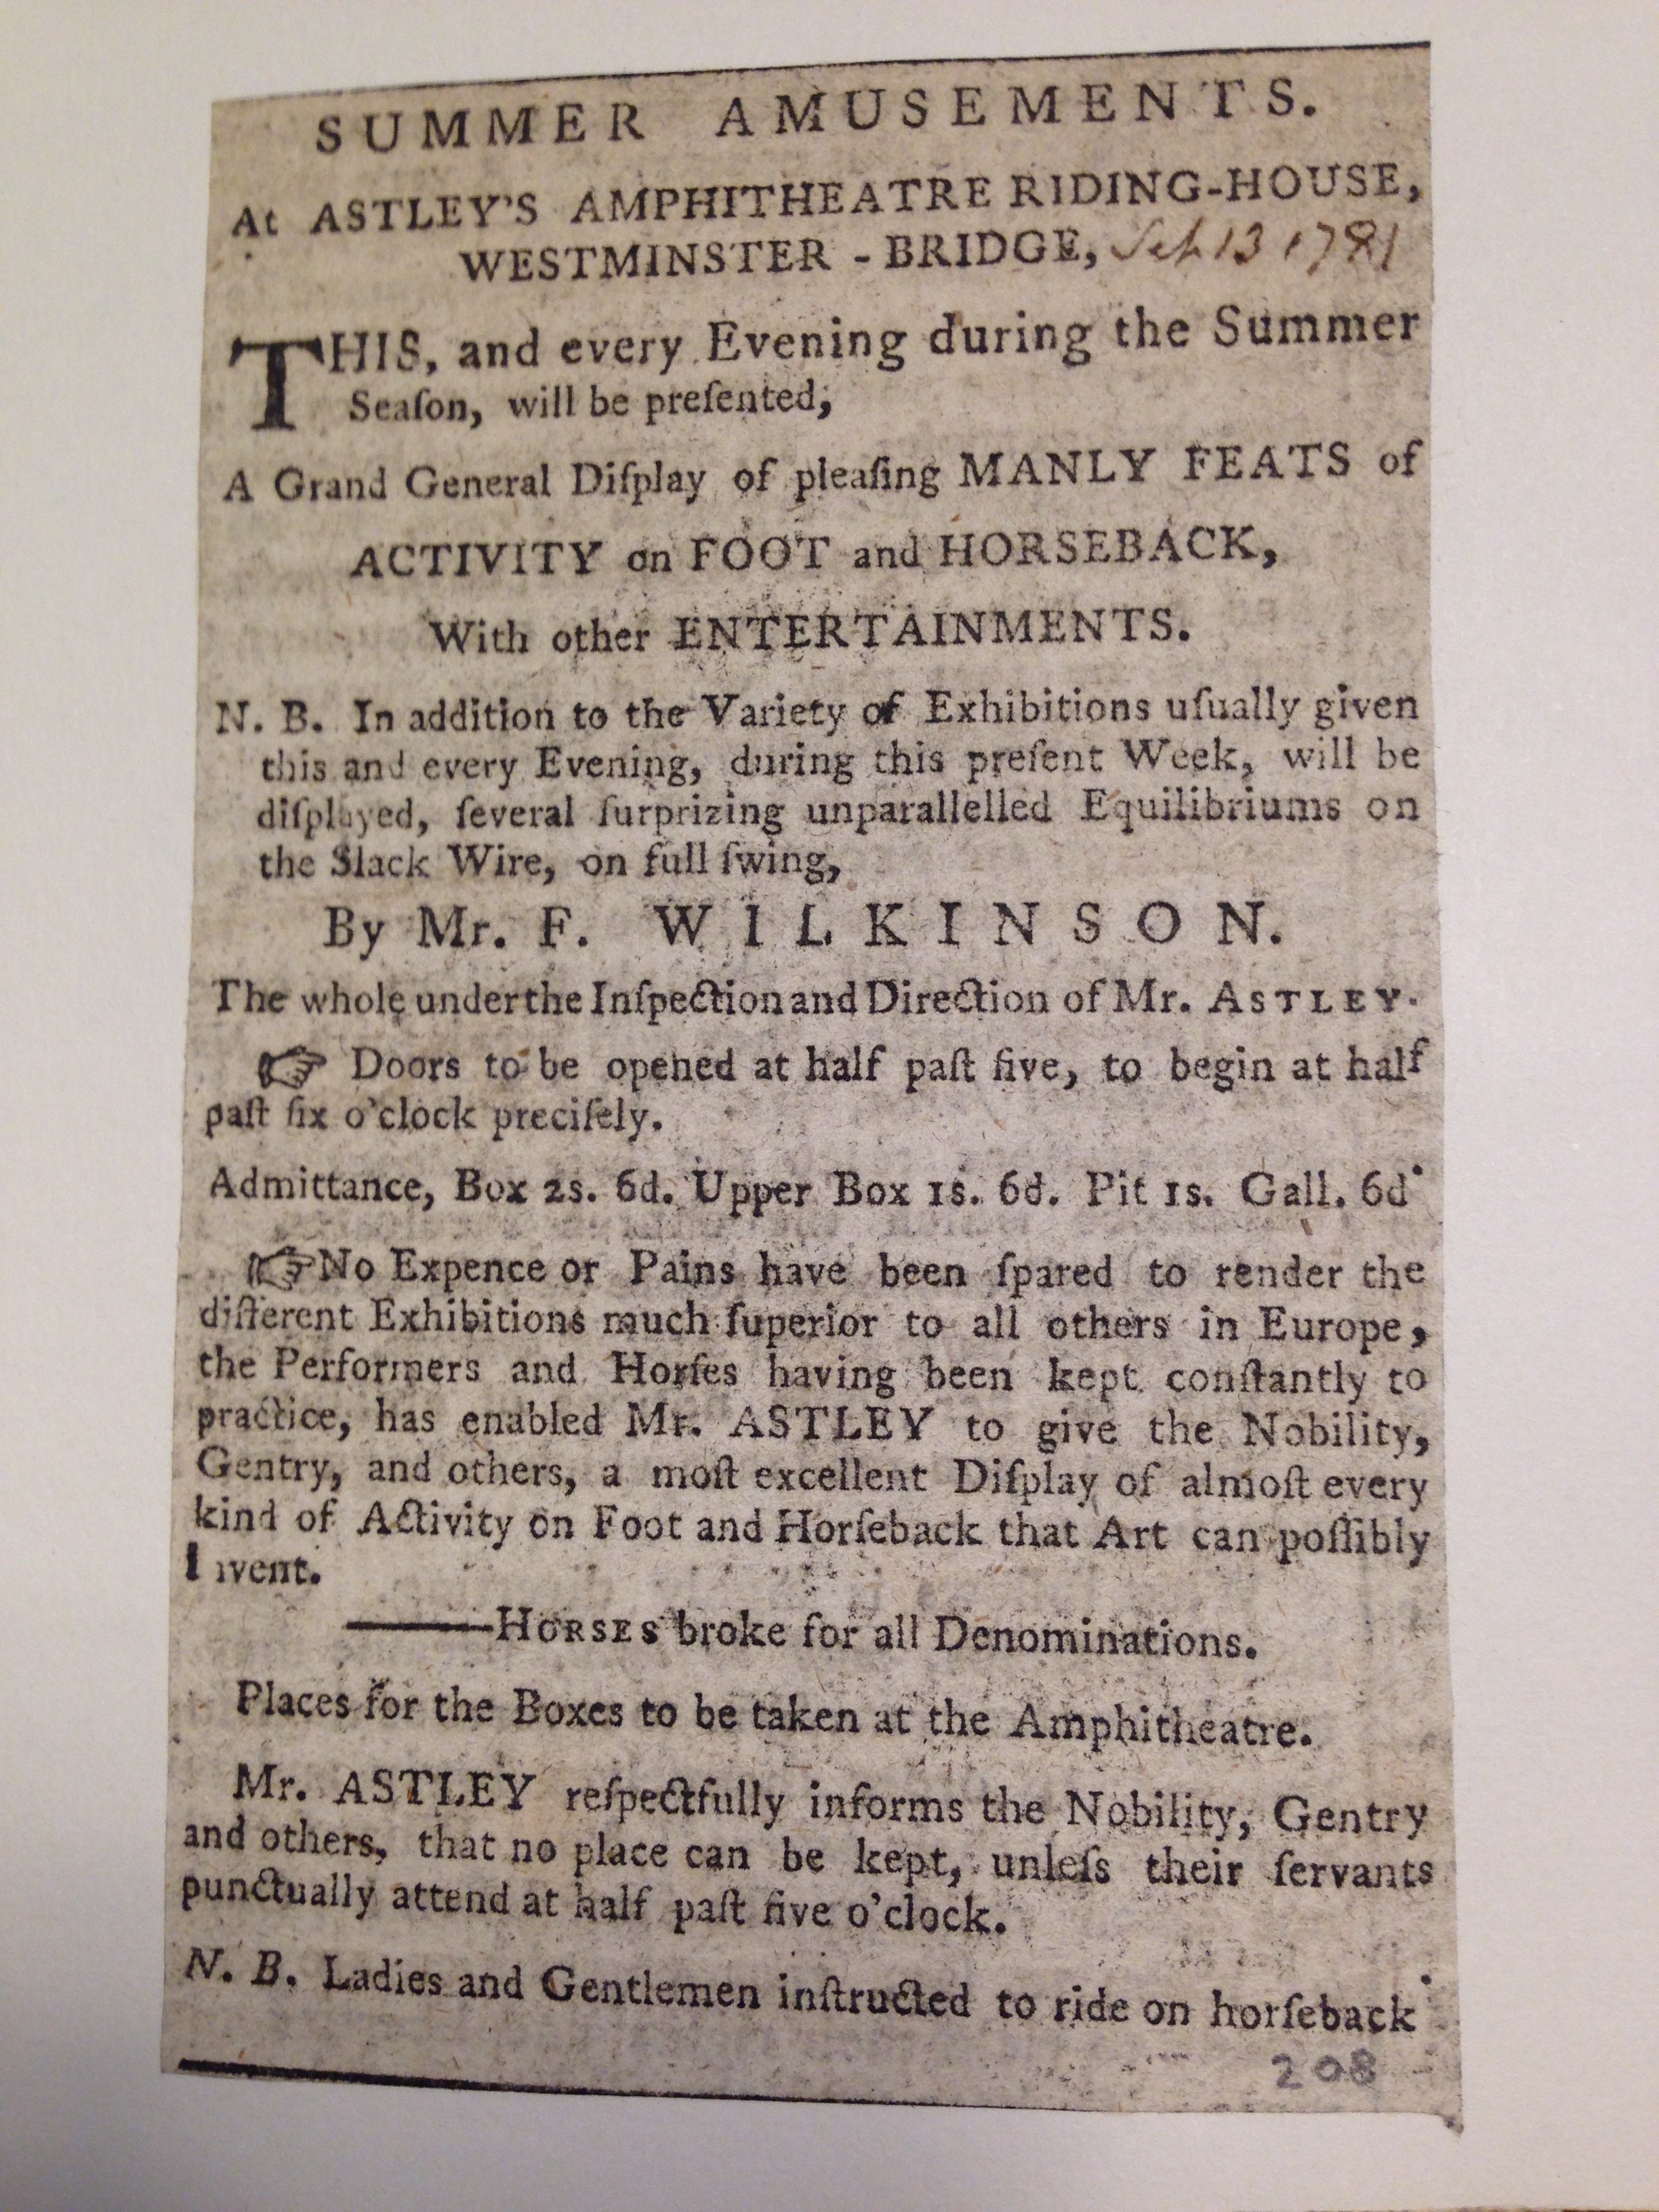 SUMMER AMUSEMENTS.
At ASTLEY'S AMPHITHEATRE RIDING-HOUSE,
WESTMINSTER - BRIDGE, Sep 13 1781
THIS, and every Evening during the Summer
Seaſon, will be preſented;
A Grand General Diſplay of pleaſing MANLY FEATS of
ACTIVITY on FOOT and HORSEBACK,
With other ENTERTAINMENTS.
N. B. In addition to the Variety of Exhibitions uſually given
this and every Evening, during this preſent Week, will be
diſplayed, ſeveral ſurprizing unparallelled Equilibriums on
the Slack Wire, on full ſwing,
By Mr. F. WILKINSON.
The whole under the Inſpection and Direction of Mr. ASTLEY.
☞ Doors to be opened at half paſt five, to begin at half
paſt ſix o'clock preciſely.
Admittance, Box 2s. 6d. Upper Box 1s. 6d. Pit 1s. Gall. 6d.
☞ No Expence or Pains have been ſpared to render the
different Exhibitions much ſuperior to all others in Europe,
the Performers and Horſes having been kept conſtantly to
practice, has enabled Mr. ASTLEY to give the Nobility,
Gentry, and others, a moſt excellent Diſplay of almoſt every
kind of Activity on Foot and Horſeback that Art can poſſibly
Invent.
———HORSES broke for all Denominations.
Places for the Boxes to be taken at the Amphitheatre.
Mr. ASTLEY reſpectfully informs the Nobility, Gentry
and others, that no place can be kept, unleſs their ſervants
punctually attend at half paſt five o'clock.
N. B. Ladies and Gentlemen inſtructed to ride on horſeback.
208